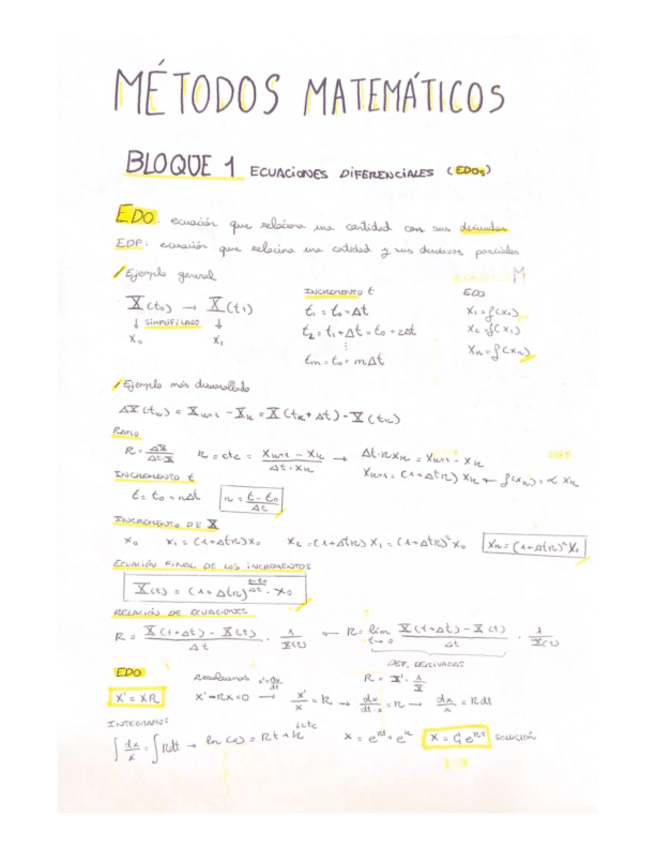 MÉTODOS MATEMÁTICOS
BLOQUE 1 ECUACIONES DIFERENCIALES (EDOs)
EDO: ecuación que relaciona una cantidad con sus derivadas
EDP: ecuación que relacina una cantidad y sus derivadas parciales
/Ejemplo general
X(t₀) → X(t₁)
↓ SIMPLIFICADO ↓
X₀ X₁
INCREMENTO t
t₁ = t₀ + Δt
t₂ = t₁ + Δt = t₀ + 2Δt
⋮
tm = t₀ + mΔt
EDO
X₁ = f(X₀)
X₂ = f(X₁)
/Ejemplo más desarrollado
ΔX(tₖ) = Xₖ₊₁ - Xₖ = X(tₖ + Δt) - X(tₖ)
RATIO
R = ΔX / Δt·X R = cte = Xₖ₊₁ - Xₖ / Δt·Xₖ → Δt·R Xₖ = Xₖ₊₁ - Xₖ
Xₖ₊₁ = (1+ΔtR) Xₖ ← f(Xₖ) = α Xₖ
INCREMENTO t
t = t₀ + nΔt n = t - t₀ / Δt
INCREMENTO DE X
X₀ X₁ = (1+ΔtR)X₀ X₂ = (1+ΔtR) X₁ = (1+ΔtR)²X₀ Xₙ = (1+ΔtR)ⁿX₀
ECUACIÓN FINAL DE LOS INCREMENTOS
X(t) = (1+ΔtR)^(t-t₀/Δt) · X₀
RELACIÓN DE ECUACIONES
R = X(t+Δt) - X(t) / Δt · 1/X(t) ← R = lim t→0 X(t+Δt) - X(t) / Δt · 1/X(t)
DEF. DERIVADAS
EDO Resolvamos x' = dx/dt R = X' · 1/X
X' = XR X' - RX = 0 → X'/X = R → dx/dt·x = R → dx/x = R dt
INTEGRAMOS
∫ dx/x = ∫ R dt → ln(x) = Rt + k
X = C eᴿᵗ SOLUCIÓN